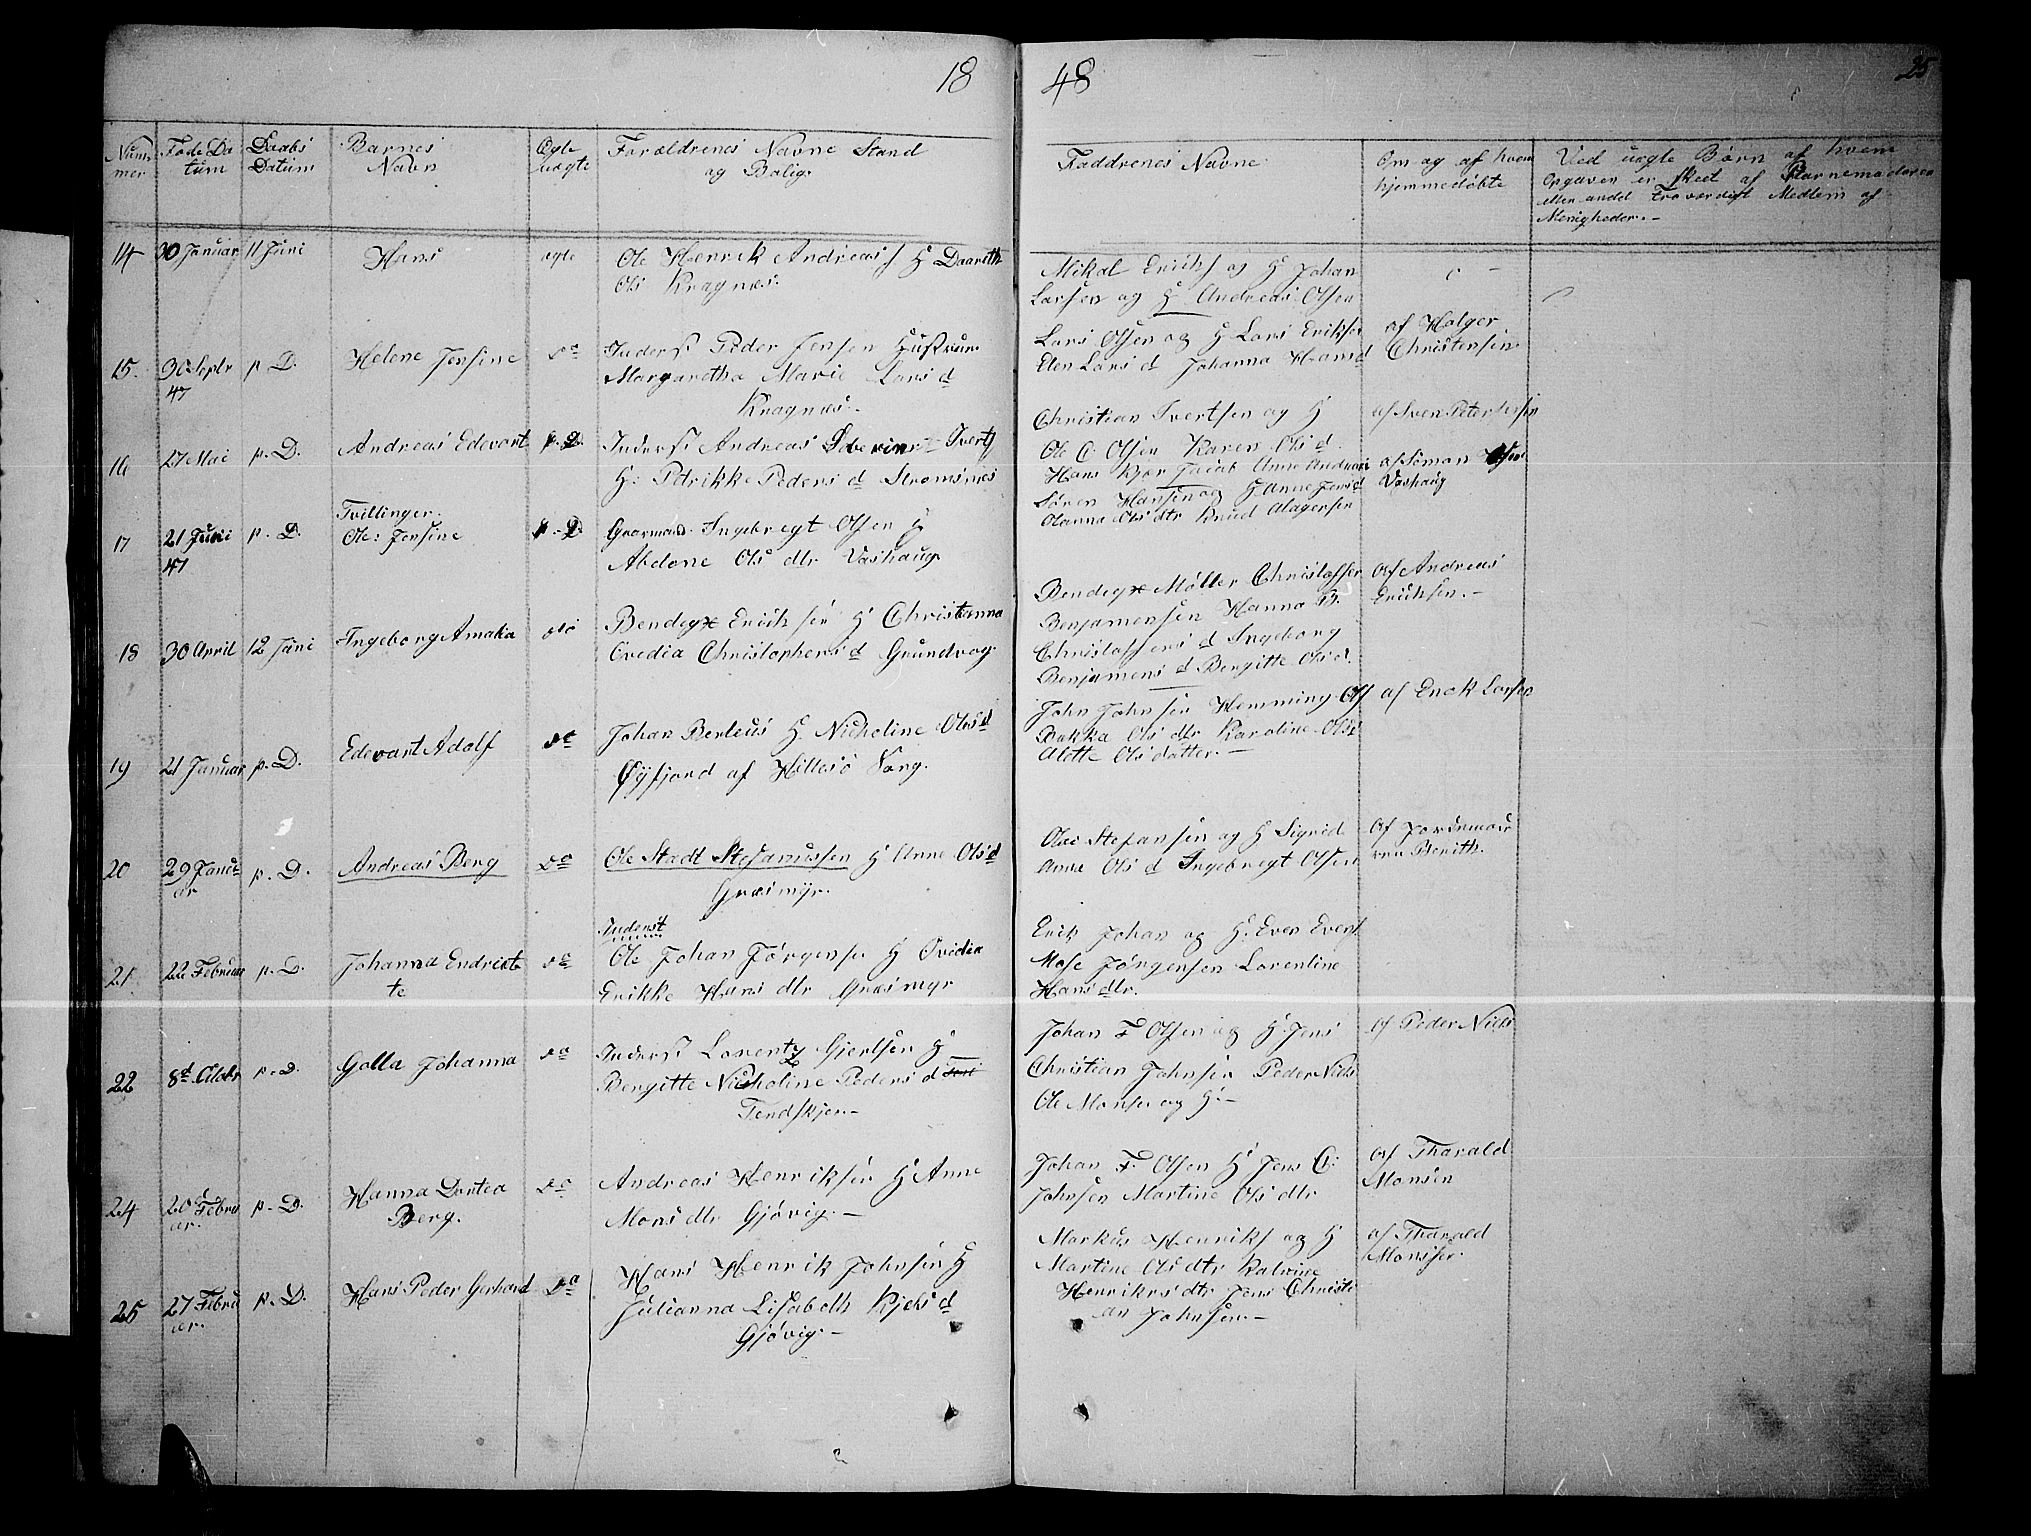 18
48
25
Num
mer
Føde Da
tum
Daabs
Datum
Barnes
Navn
Ægte
Uægte
Forældrenes Navne Stand
og Bolig
Faddrenes Navne
Om og af hvem
hjemmedøbte
Ved uægte Børn af hvem
Opgaven er skeet af Barnemoderen
eller andet troværdigt Medlem af
Menigheden.-
14 30 Januar 11 Juni Hans ægte Ole Henrik Andreass H Daarith
Ols Kragnæs.
Mikal Eriks og H Johan
Larsen og H Andreas Olsen
15. 30 Septr p. D. Helene Jensine do Inderst Peder Jensen Hustrue
47 Margaretha Marie Lars d
Kragnæs.-
Lars Olsen og H Lars Eriksen
Elen Lars d Johanna Hans d
af Holger
Christensen
16 27 Mai p. D. Andreas Edevart p. D. Inderst Andreas Iverts
H: Petrikke Peders d Strømsnæs
Christian Ivertsen og H
Ole C. Olsen Karen Ols d.
af Sven Petersen
17 21 Juni p. D. Tvillinger.
47 Ole: Jensine p. D. Gaarmand Ingebregt Olsen H
Abelone Ols dtr Vashaug
Hans Kjær Jacob Anne Andreas
Søren Hansen og H Anne Jens d
Olanna Ols dtr Knud Alagersen
af Simon
Vashaug
18 30 April 12 Juni Ingeborg Amalia do Bendegx Eriksen H Christianna
Ovedia Christophers d Grundvog
Bendegx Møller Christoffer
Benjamensen Hanna B.
Christoffers d Ingeborg
Benjamens d Bergitte Ols d.
af Andreas
Eriksen.-
19 21 Januar p. D. Edevart Adolf do Johan Berteus H. Nicholine Ols d
Øyfjord af Hillesø Sogn.
John Johnsen Hemming Ols
Bakka Ols dtr Karoline Ols
Alette Ols datter.-
af Enok Larsen
20 29 Janu
ar p. D. Andreas Berg do Ole Stadt Stefanussen H Anne Ols d
Græsmyr.
Ole Stefansen og H Sigrid
Anna Ols d Ingebregt Olsen
af Jordemod
ren Berith.
21 22 Februar p. D. Johanna Endriete
te do Inderst
Ole Johan Jørgensen H Ovidia
Erikke Hans dtr Græsmyr
Erik Johan og H. Even Evens
Mose Jørgensen Lorentine
Hans dtr.
22 8d Octbr p. D. Golla Johanna do Inderst Lorentz Gjertsen H
Bergitte Nicholine Peders d
Tendskjer.-
Johan F Olsen og H. Jens
Christian Johnsen Peder Niels
Ole Monsen og H.-
af Peder Niels
24 20 Febru
ar. p. D. Hanna Dortea
Berg. do Andreas Henriksen H Anne
Mons dtr Gjøvig.-
Johan F. Olsen H Jens C.
Johnsen Martine Ols dtr
af Tharald
Monsen
25 27 Febru
ar. p. D. Hans Peder Gerhard do Hans Henrik Johnsen H
Julianna Lisabeth Kjels d
Gjøvig.-
Markus Henriks og H
Martine Ols dtr Katrine
Henriks dtr Jens Christi
an Johnsen.-
af Tharald
Monsen.